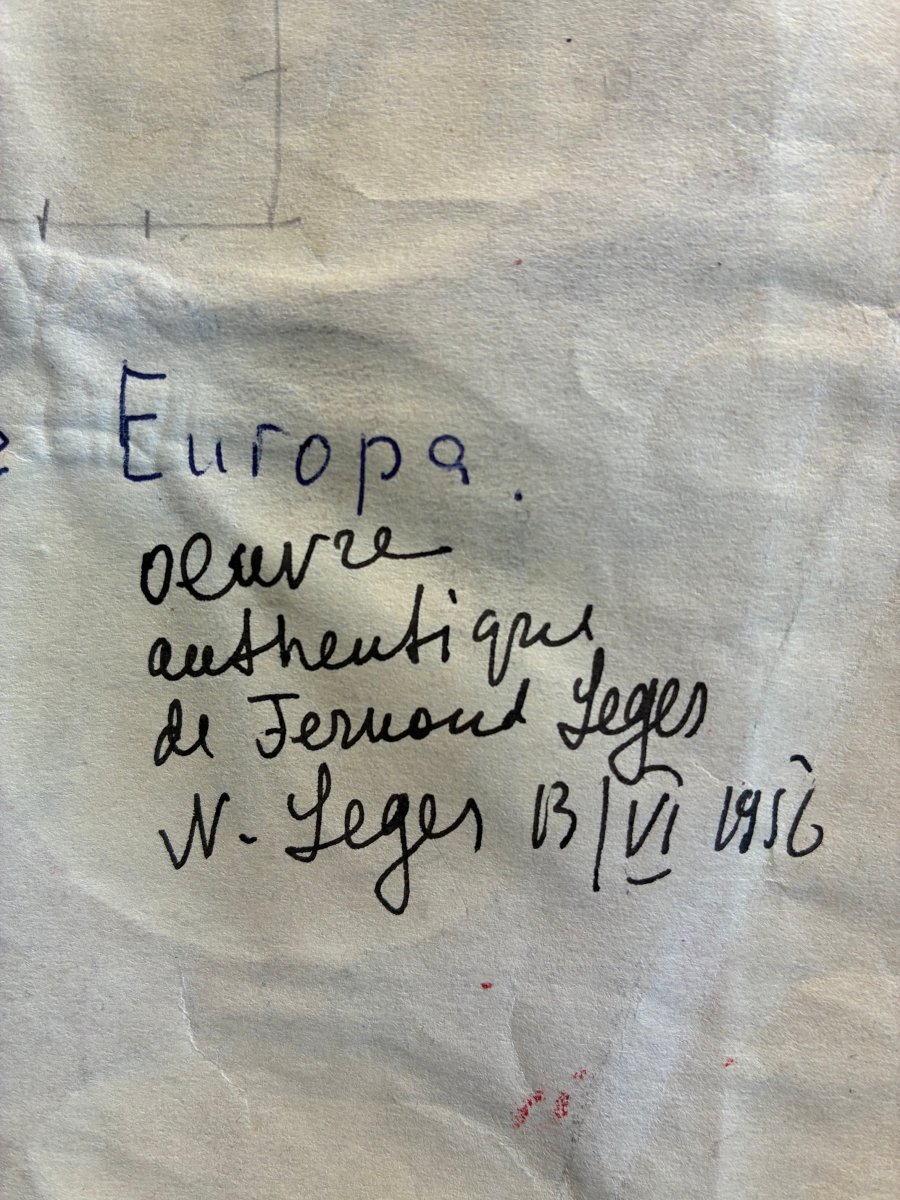 Europa.
oeuvre
authentique
de Fernand Leger
N. Leger 13/VI 1956